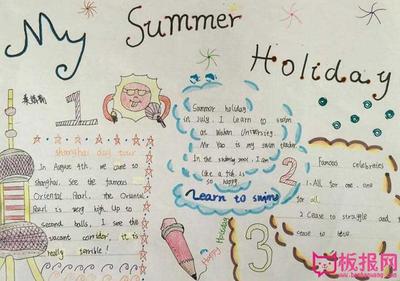 My Summer Holiday
1
shanghai day tour
In August 4th, we went to
shanghai. See the famous
Oriental Pearl, the Oriental
Pearl is very high. Up to
second balls, I see the
vacant corridor, it is
really terrible!
Summer holiday
in July. I learn to swim
at Wuhan University.
Mr Yao is my swim teacher
In the swimming pool, I am
like a fish is
so happy.
Learn to swim
2
Famous celebrates
1. All for one, one
for all.
2. Cease to struggle and
cease to live.
3
Happy Holiday
板报网